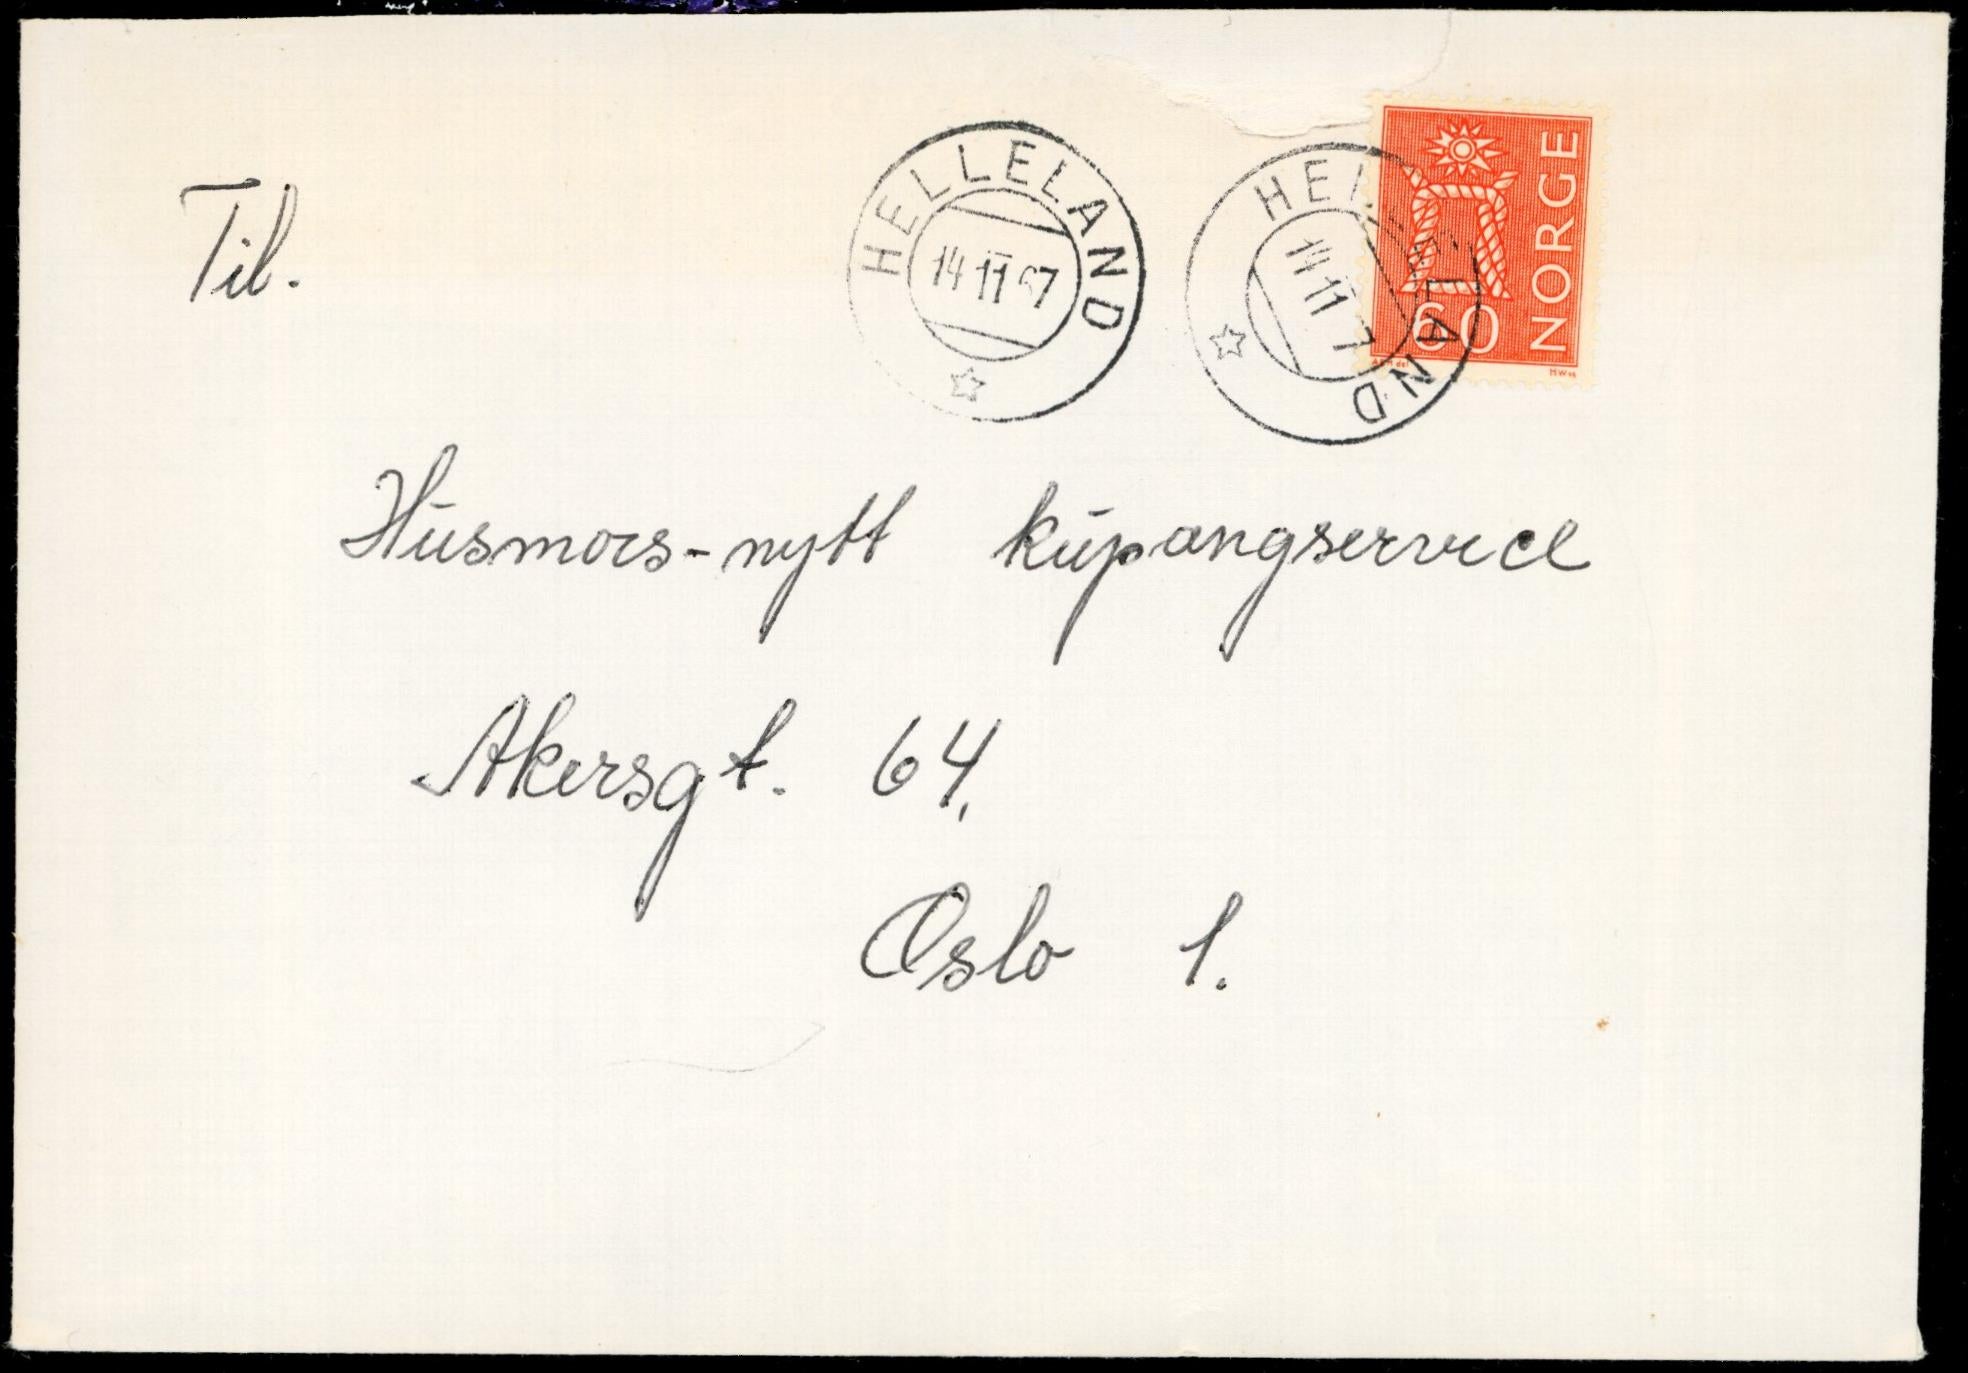 HELLELAND
14 11 67
HELLELAND
14 11 7
NORGE
60
Til.
Husmors-nytt kupangservice
Akersgt. 64.
Oslo 1.